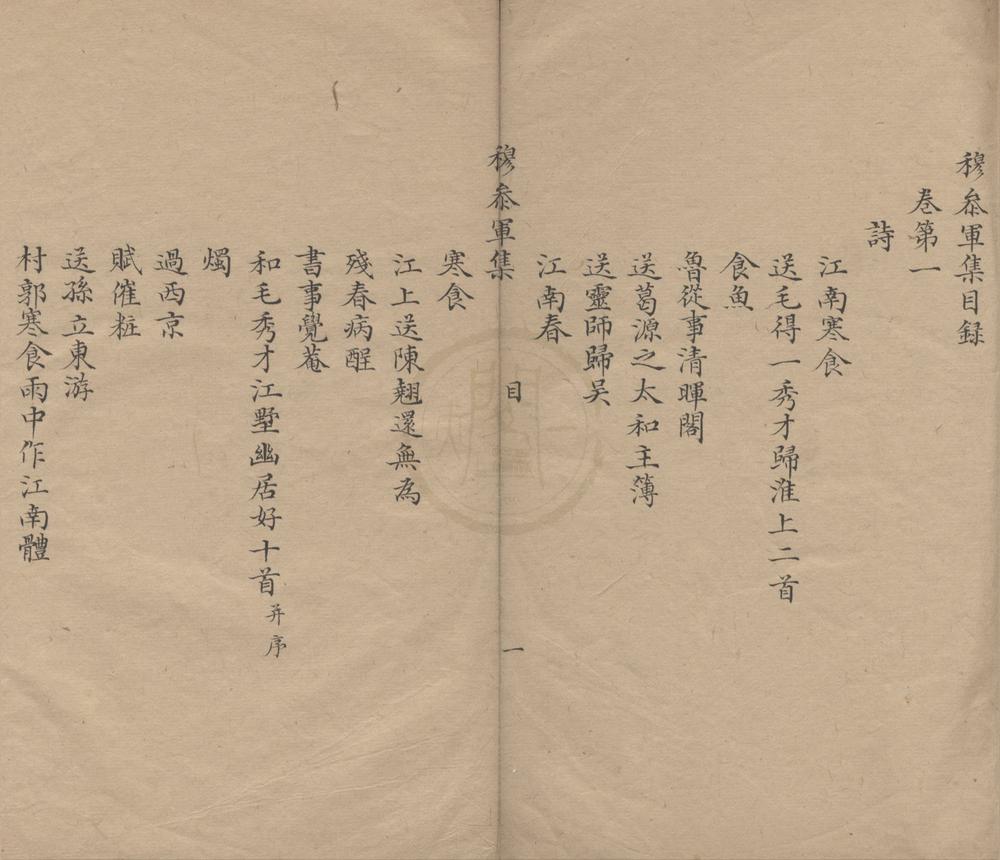 穆叅軍集目録
卷第一
詩
江南寒食
送毛得一秀才歸淮上二首
食魚
魯從事清暉閣
送葛源之太和主簿
送靈師歸吴
江南春
穆叅軍集
目
一
寒食
江上送陳翹還無為
殘春病酲
書事覺菴
和毛秀才江墅幽居好十首并序
燭
過西京
賦催粧
送孫立東游
村郭寒食雨中作江南體